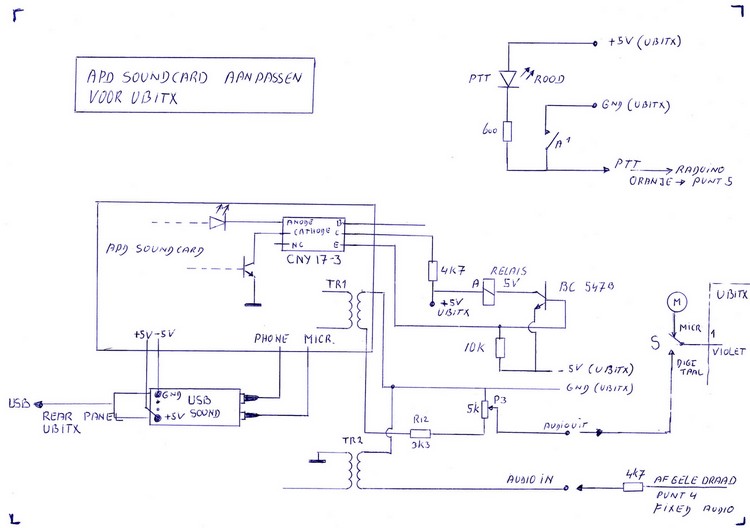 APD SOUNDCARD AANPASSEN
VOOR UBITX
+5V (UBITX)
PTT
ROOD
GND (UBITX)
600
A1
PTT → RADUINO
ORANJE → PUNT 5
ANODE B
CATHODE C
NC E
CNY 17-3
APD SOUNDCARD
TR1
4K7
RELAIS
5V
A
BC 547B
+5V
UBITX
10K
-5V (UBITX)
GND (UBITX)
M
UBITX
MICR
1
S
VIOLET
DIGI
TAAL
+5V -5V
PHONE MICR.
USB
REAR PANEL
UBITX
GND
+5V
USB
SOUND
R12
3K3
5K
P3
AUDIO UIT
TR2
AUDIO IN
4K7
AF GELE DRAAD
PUNT 4
FIXED AUDIO